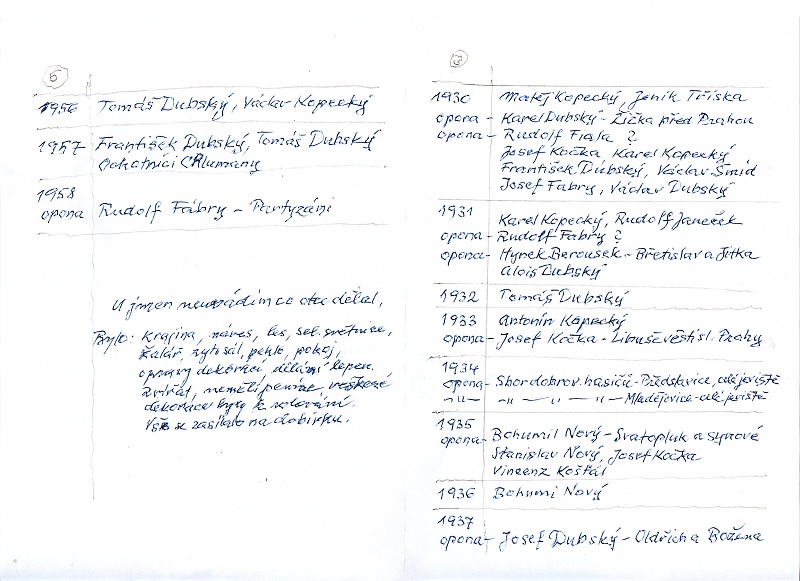 5
1956 Tomáš Dubský, Václav Kopecký
1957 František Dubský, Tomáš Dubský
Ochotníci Chlumany
1958
opona Rudolf Fábry - Partyzáni
U jmen neuvádím co otec dělal,
Bylo: krajina, náves, les, sel. světnice,
žalář, ryt. sál, peklo, pokoj,
opravy dekorací, dělání lepen.
zvířat, neměli peníze, veškeré
dekorace byly k rolování.
Vše se zasílalo na dobírku.
3
1930 Matěj Kopecký, Jeník Tříska
opona - Karel Dubský - Žižka před Prahou
opona - Rudolf Fiala ?
Josef Kočka, Karel Kopecký
František Dubský, Václav Šmíd
Josef Fábry, Václav Dubský
1931 Karel Kopecký, Rudolf Janeček
opona - Rudolf Fabry ?
opona - Hynek Berousek - Břetislav a Jitka
Alois Dubský
1932 Tomáš Dubský
1933 Antonín Kopecký
opona - Josef Kočka - Libuše věští sl. Prahy
1934
opona - Sbor dobrov. hasičů - Předslavice, celé jeviště
-"- -"- - " - - Mladějovice - celé jeviště
1935
opona - Bohumil Nový - Svatopluk a synové
Stanislav Nový, Josef Kočka
Vincenz Košťál
1936 Bohumi Nový
1937
opona - Josef Dubský - Oldřich a Božena